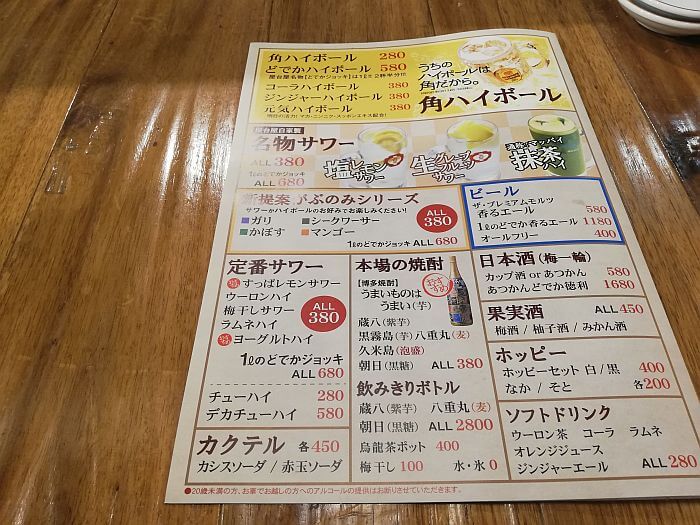 角ハイボール 280
どでかハイボール 580
コーラハイボール 380
ジンジャーハイボール 380
元気ハイボール 380
うちの
ハイボールは
角だから。
角ハイボール
屋台屋自家製
名物サワー
ALL 380
1ℓのどでかジョッキ
ALL 680
塩レモンサワー
生グレープフルーツサワー
抹茶ハイ
新提案 がぶのみシリーズ
サワーかハイボールのお好みでお楽しみください!
ガリ シークワーサー
かぼす マンゴー
ALL 380
1ℓのどでかジョッキ ALL 680
ビール
ザ・プレミアムモルツ
香るエール 580
1ℓのどで香るエール 1180
オールフリー 400
定番サワー
すっぱレモンサワー
ウーロンハイ
梅干しサワー
ラムネハイ
ヨーグルトハイ
ALL 380
1ℓのどでかジョッキ
ALL 680
チューハイ 280
デカチューハイ 580
カクテル 各450
カシスソーダ / 赤玉ソーダ
本場の焼酎
【博多焼酎】
うまいものは
うまい(芋)
おすすめ
蔵八(紫芋)
黒霧島(芋) 八重丸(麦)
久米島(泡盛)
朝日(黒糖) ALL 380
飲みきりボトル
蔵八(紫芋) 八重丸(麦)
朝日(黒糖) ALL 2800
烏龍茶ポット 400
梅干し 100 水・氷 0
日本酒(梅一輪)
カップ酒 or あつかん 580
あつかんどでか徳利 1680
果実酒 ALL 450
梅酒 / 柚子酒 / みかん酒
ホッピー
ホッピーセット 白 / 黒 400
なか / そと 各200
ソフトドリンク
ウーロン茶 コーラ ラムネ
オレンジジュース
ジンジャーエール ALL 280
●20歳未満の方、お車でお越しの方へのアルコールの提供はお断りさせていただきます。